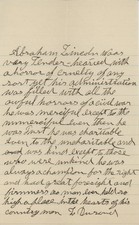 Abraham Lincoln was
very tender-hearted with
a horror of cruelty of any
sort yet his administration
was filled with all the
awful horrors of civil war
he was merciful except to the
unmerciful even then he
was just he was charitable
even to the uncharitable and
was kind except to those
who were unkind he was
always a champion for the right
and had great foresight and
firmness as man, was held so
high a place in the hearts of his
country men